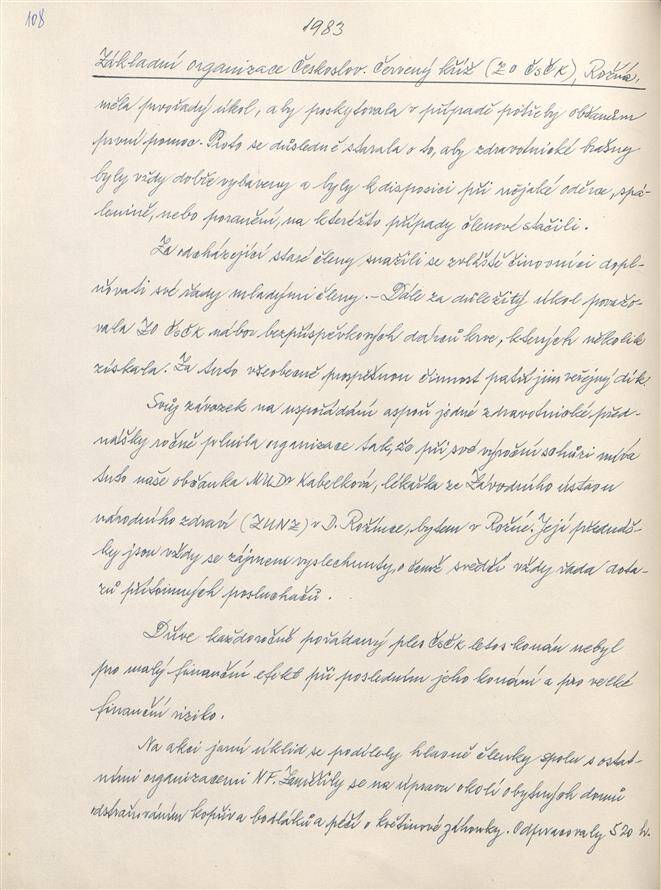 108
1983
Základní organizace Českoslov. červený kříž (ZO ČsČK), Rožná,
měla prvořadý úkol, aby poskytovala v případě potřeby občanům
první pomoc. Proto se důsledně starala o to, aby zdravotnické brašny
byly vždy dobře vybaveny a byly k disposici při nějaké oděrce, spá-
lenině, nebo poranění, na kterézto případy členové stačili.
Za odcházející staré členy snažili se zvláště činovníci dopl-
ňovati své řady mladými členy. - Dále za důležitý úkol považo-
vala ZO ČsČK nábor bezpříspěvkových dárců krve, kterých několik
získala. Za tuto všeobecně prospěšnou činnost patří jim veřejný dík.
Svůj závazek na uspořádání aspoň jedné zdravotnické před-
nášky ročně plnila organizace tak, že při své výroční schůzi mívá
tuto naše občanka MUDr Kabelková, lékařka ze Závodního ústavu
národního zdraví (ZUNZ) v D. Rožínce, bytem v Rožné. Její přednáš-
ky jsou vždy se zájmem vyslechnuty, o čemž svědčí vždy řada dota-
zů přítomných posluchačů.
Dříve každoročně pořádaný ples ČsČK letos konán nebyl
pro malý finanční efekt při posledním jeho konání a pro velké
finanční riziko.
Na akci jarní úklid se podílely hlavně členky spolu s ostat-
ními organizacemi NF. Zaměřily se na úpravu okolí obytných domů
odstraňováním kopřiv a bodláků a péčí o květinové záhonky. Odpracovaly 520 h.